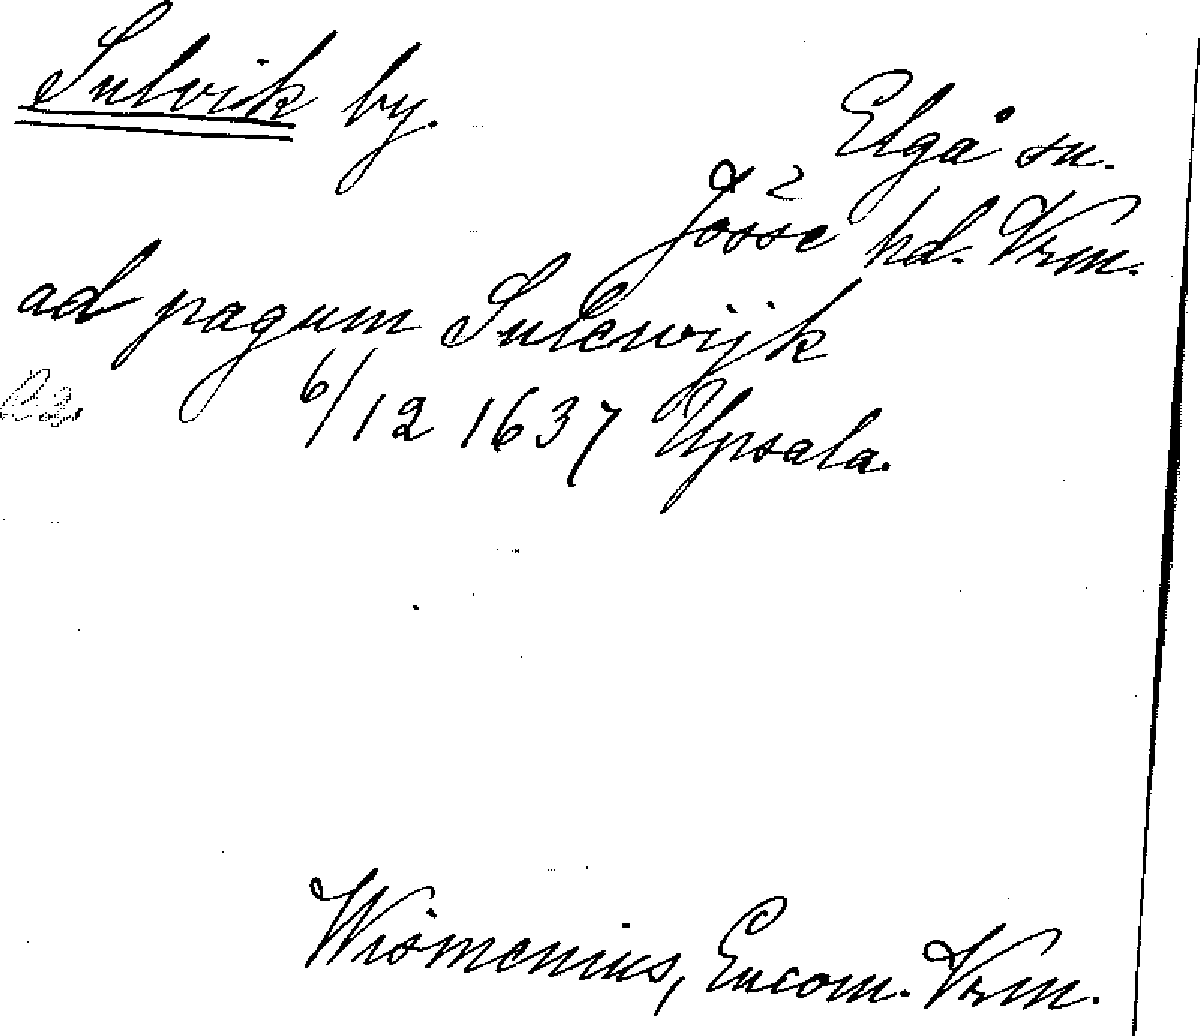 Sulvik by.
Elgå sn.
Jösse hd. Vrm.
ad pagum Sulewijk
6/12 1637 Upsala.
Wismenius, Encom. Vrm.